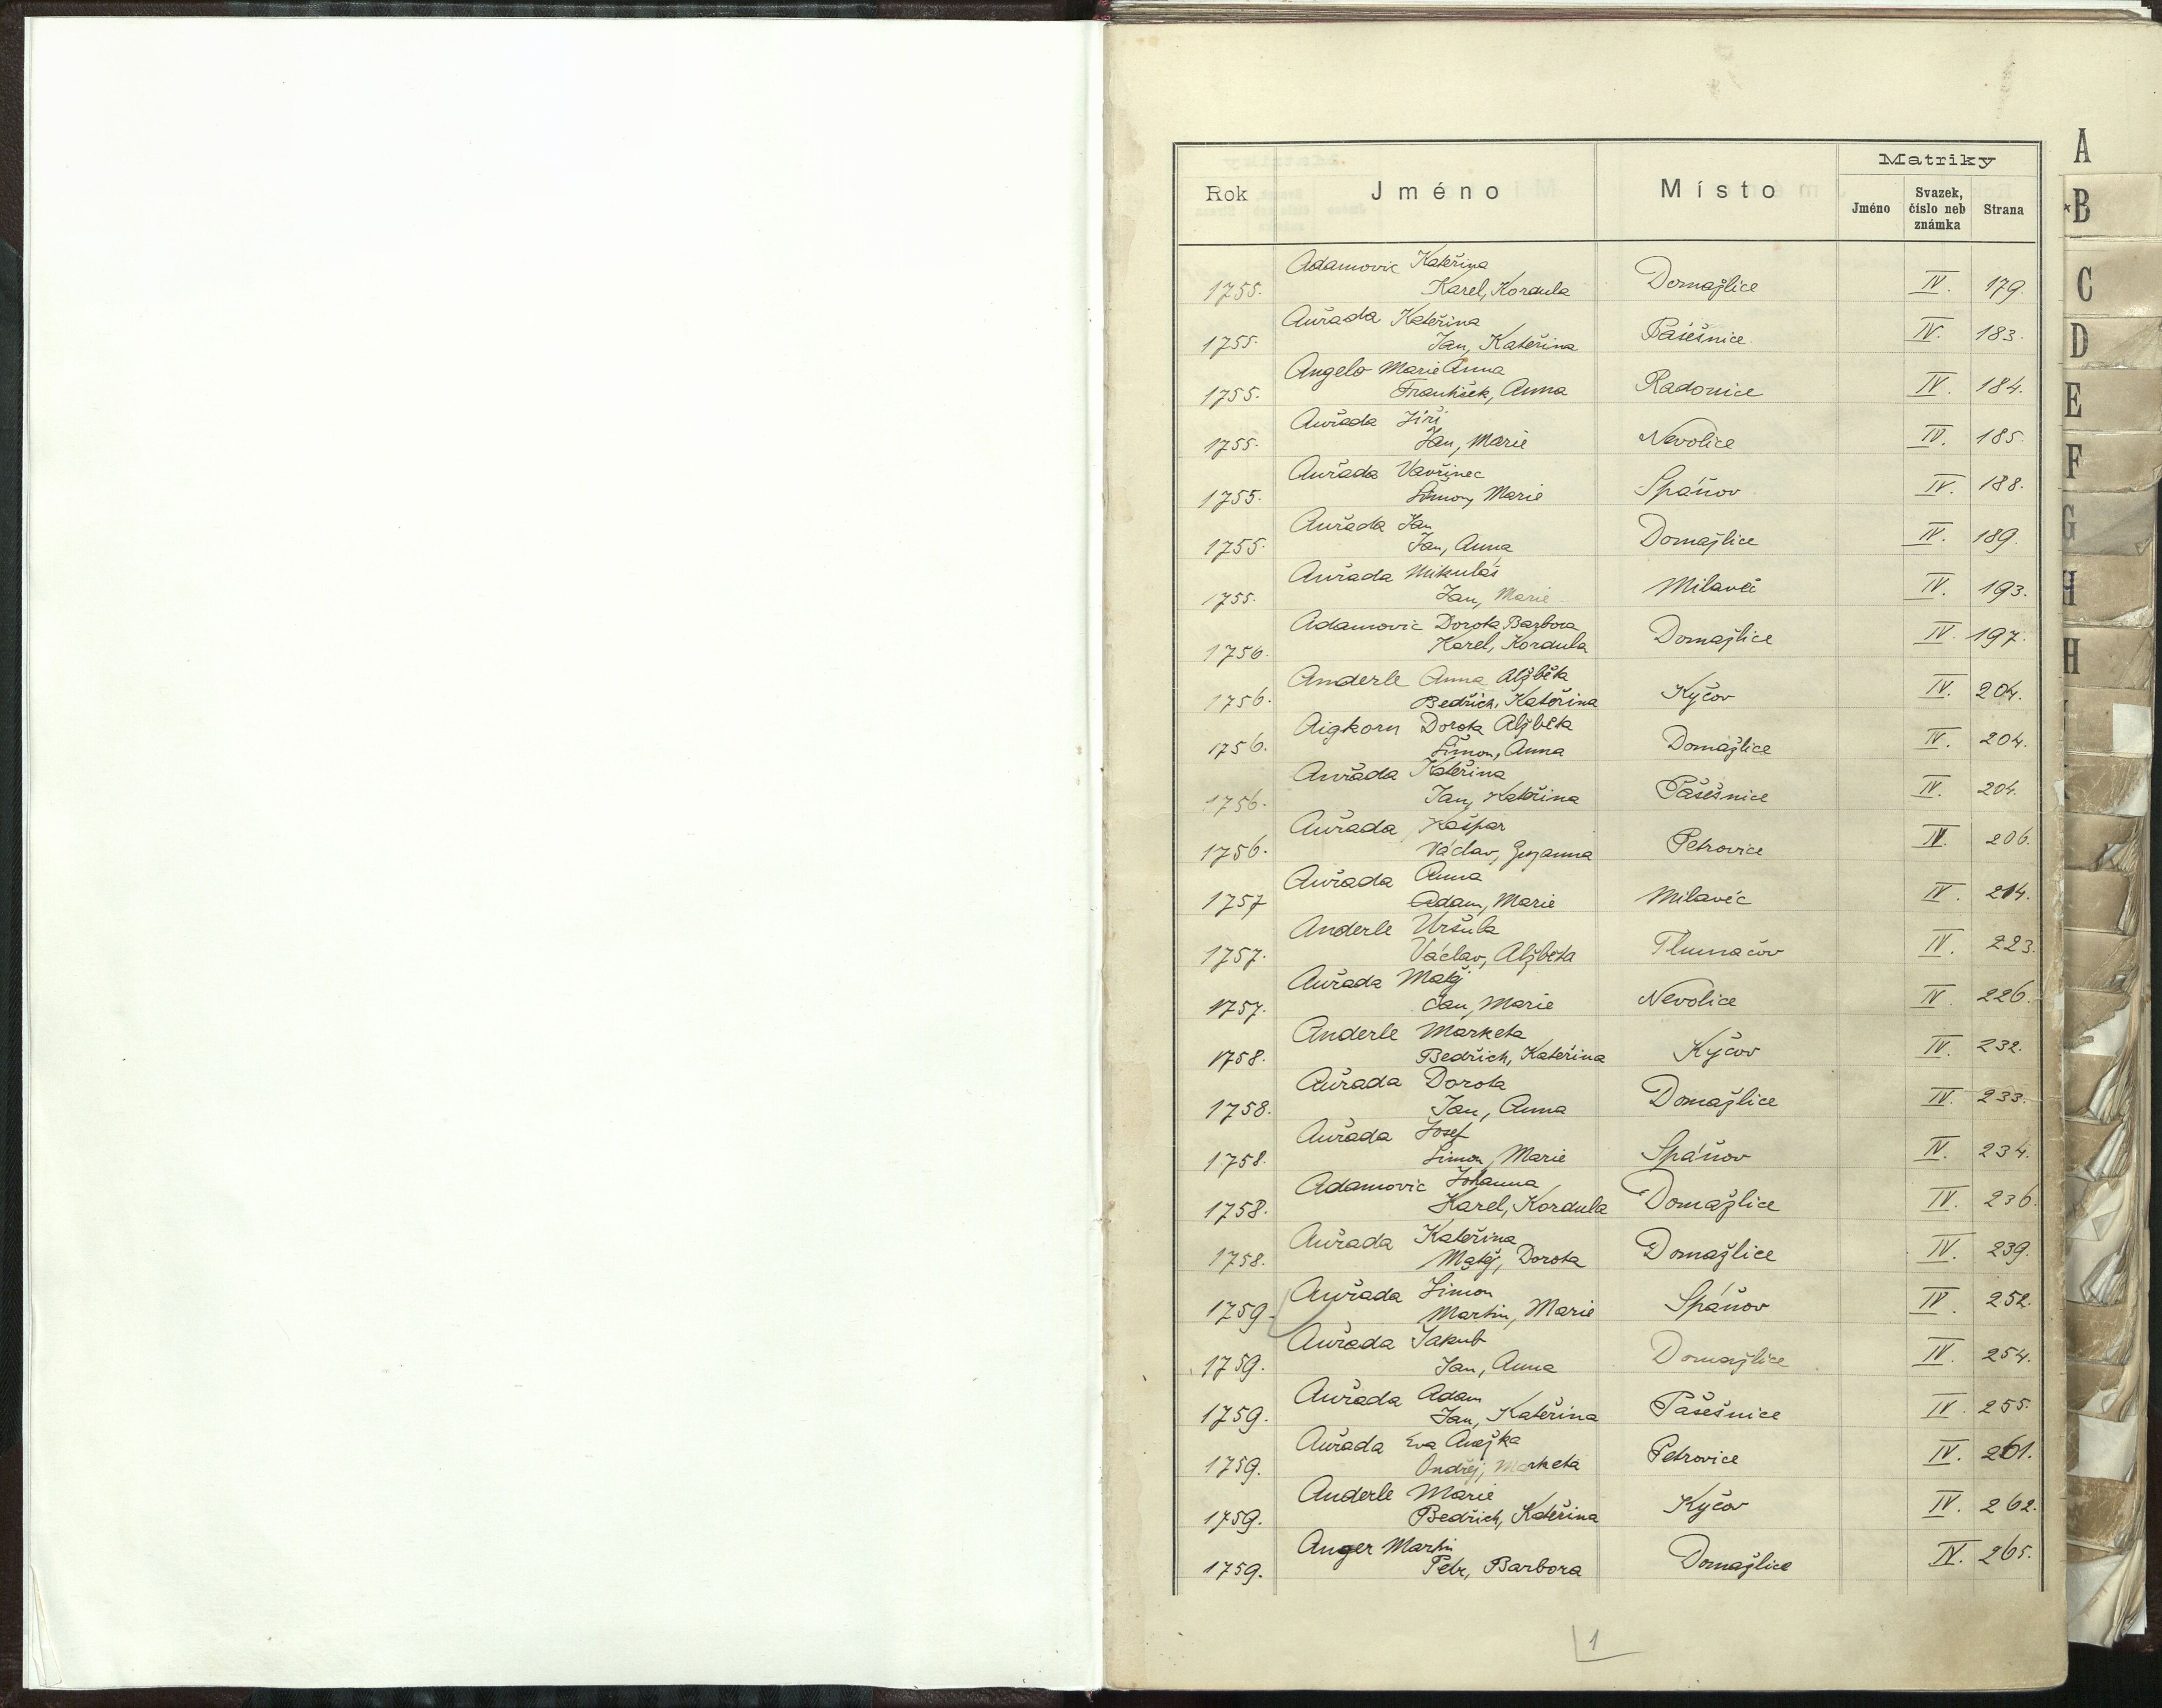 Rok Jméno Místo Matriky
Jméno Svazek, číslo neb známka Strana
Adamovic Kateřina
1755. Karel, Kordula Domažlice IV. 179.
Auřada Kateřina
1755. Jan, Kateřina Pasešnice IV. 183.
Angelo Marie Anna
1755. František, Anna Radonice IV. 184.
Auřada Jiří
1755. Jan, Marie Nevolice IV. 185.
Auřada Vavřinec
1755. Šimon, Marie Spáňov IV. 188.
Auřada Jan
1755. Jan, Anna Domažlice IV. 189.
Auřada Mikuláš
1755. Jan, Marie Milavče IV. 193.
Adamovic Dorota Barbora
1756. Karel, Kordula Domažlice IV. 197.
Anderle Anna Alžběta
1756. Bedřich, Kateřina Kyčov IV. 204.
Aigkorn Dorota Alžběta
1756. Šimon, Anna Domažlice IV. 204.
Auřada Kateřina
1756. Jan, Kateřina Pašešnice IV. 204.
Auřada Kašpar
1756. Václav, Zuzanna Petrovice IV. 206.
Auřada Anna
1757 Adam, Marie Milavěc IV. 214.
Anderle Uršula
1757. Václav, Alžběta Tlumačov IV. 223.
Auřada Matěj
1757. Jan, Marie Nevolice IV. 226.
Anderle Marketa
1758. Bedřich, Kateřina Kyčov IV. 232.
Auřada Dorota
1758. Jan, Anna Domažlice IV. 233.
Auřada Josef
1758. Šimon, Marie Spáňov IV. 234.
Adamovic Johanna
1758. Karel, Kordula Domažlice IV. 236.
Auřada Kateřina
1758. Matěj, Dorota Domažlice IV. 239.
Auřada Šimon
1759. Martin, Marie Spáňov IV. 252.
Auřada Jakub
1759. Jan, Anna Domažlice IV. 254.
Auřada Adam
1759. Jan, Kateřina Pašešnice IV. 255.
Auřada Eva Anežka
1759. Ondřej, Marketa Petrovice IV. 261.
Anderle Marie
1759. Bedřich, Kateřina Kyčov IV. 262.
Anger Martin
1759. Petr, Barbora Domažlice IV. 265.
1
A
B
C
D
E
F
G
H
H